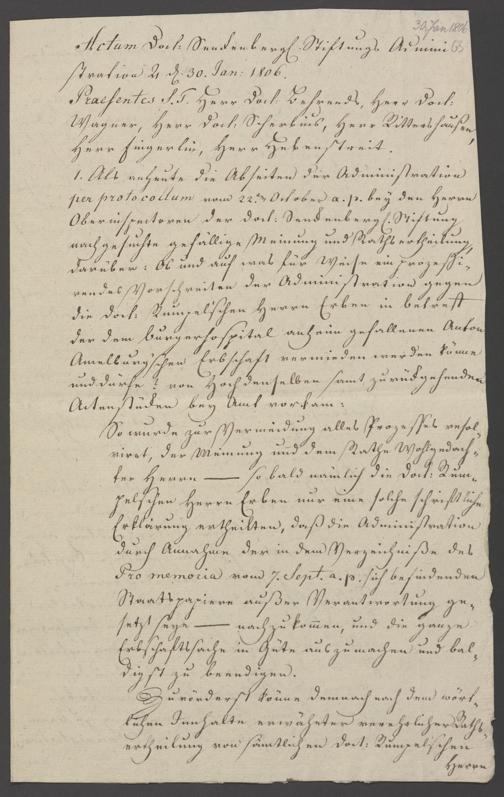 30 Jan 1806
65
Actum Doct: Senckenbergl. Stiftungs Admini
stration d. 30. Jan: 1806.
Praesentes S. T. Herr Doct. Behrends, Herr Doct:
Wagner, Herr Doct. Scherbius, Herr Rittershausen,
Herr Fingerlin, Herr Hebenstreit.
1. Als anheute die Abseiten der Administration
per protocollum vom 22ten October a. p. bey den Herrn
Oberinspectoren der Doct: Senckenbergl. Stiftung
nachgesuchte gefällige Meinung und Rathsertheilung
darüber: Ob und auf was für Weise ein prozessi-
rendes Vorschreiten der Administration gegen
die Doct: Rumpelschen Herrn Erben in betreff
der dem Burgerhospital anheim gefallenen Anton
Amelburgschen Erbschaft vermieden werden könne
und dürfe? von Hochdenselben samt zurückgehenden
Actenstücken bey Amt vorkam:
So wurde zur Vermeidung alles Prozesses resol-
virt, der Meinung und dem Rathe Wohlgedach-
ter Herrn — so bald nämlich die Doct: Rum-
pelschen Herrn Erben nur eine solche schriftliche
Erklärung ertheilten, daß die Administration
durch Annahme der in dem Verzeichniße des
Pro memoria vom 7. Sept. a. p. sich befindenden
Staatspapiere außer Verantwortung ge-
setzt seye — nachzukommen, und die ganze
Erbschaftssache in Güte auszumachen und bal-
digst zu beendigen.
Zuvörderst könne demnach nach dem wört-
lichen Innhalte erwähnter verehrlicher Raths-
ertheilung von sämtlichen Doct: Rumpelschen
Herrn